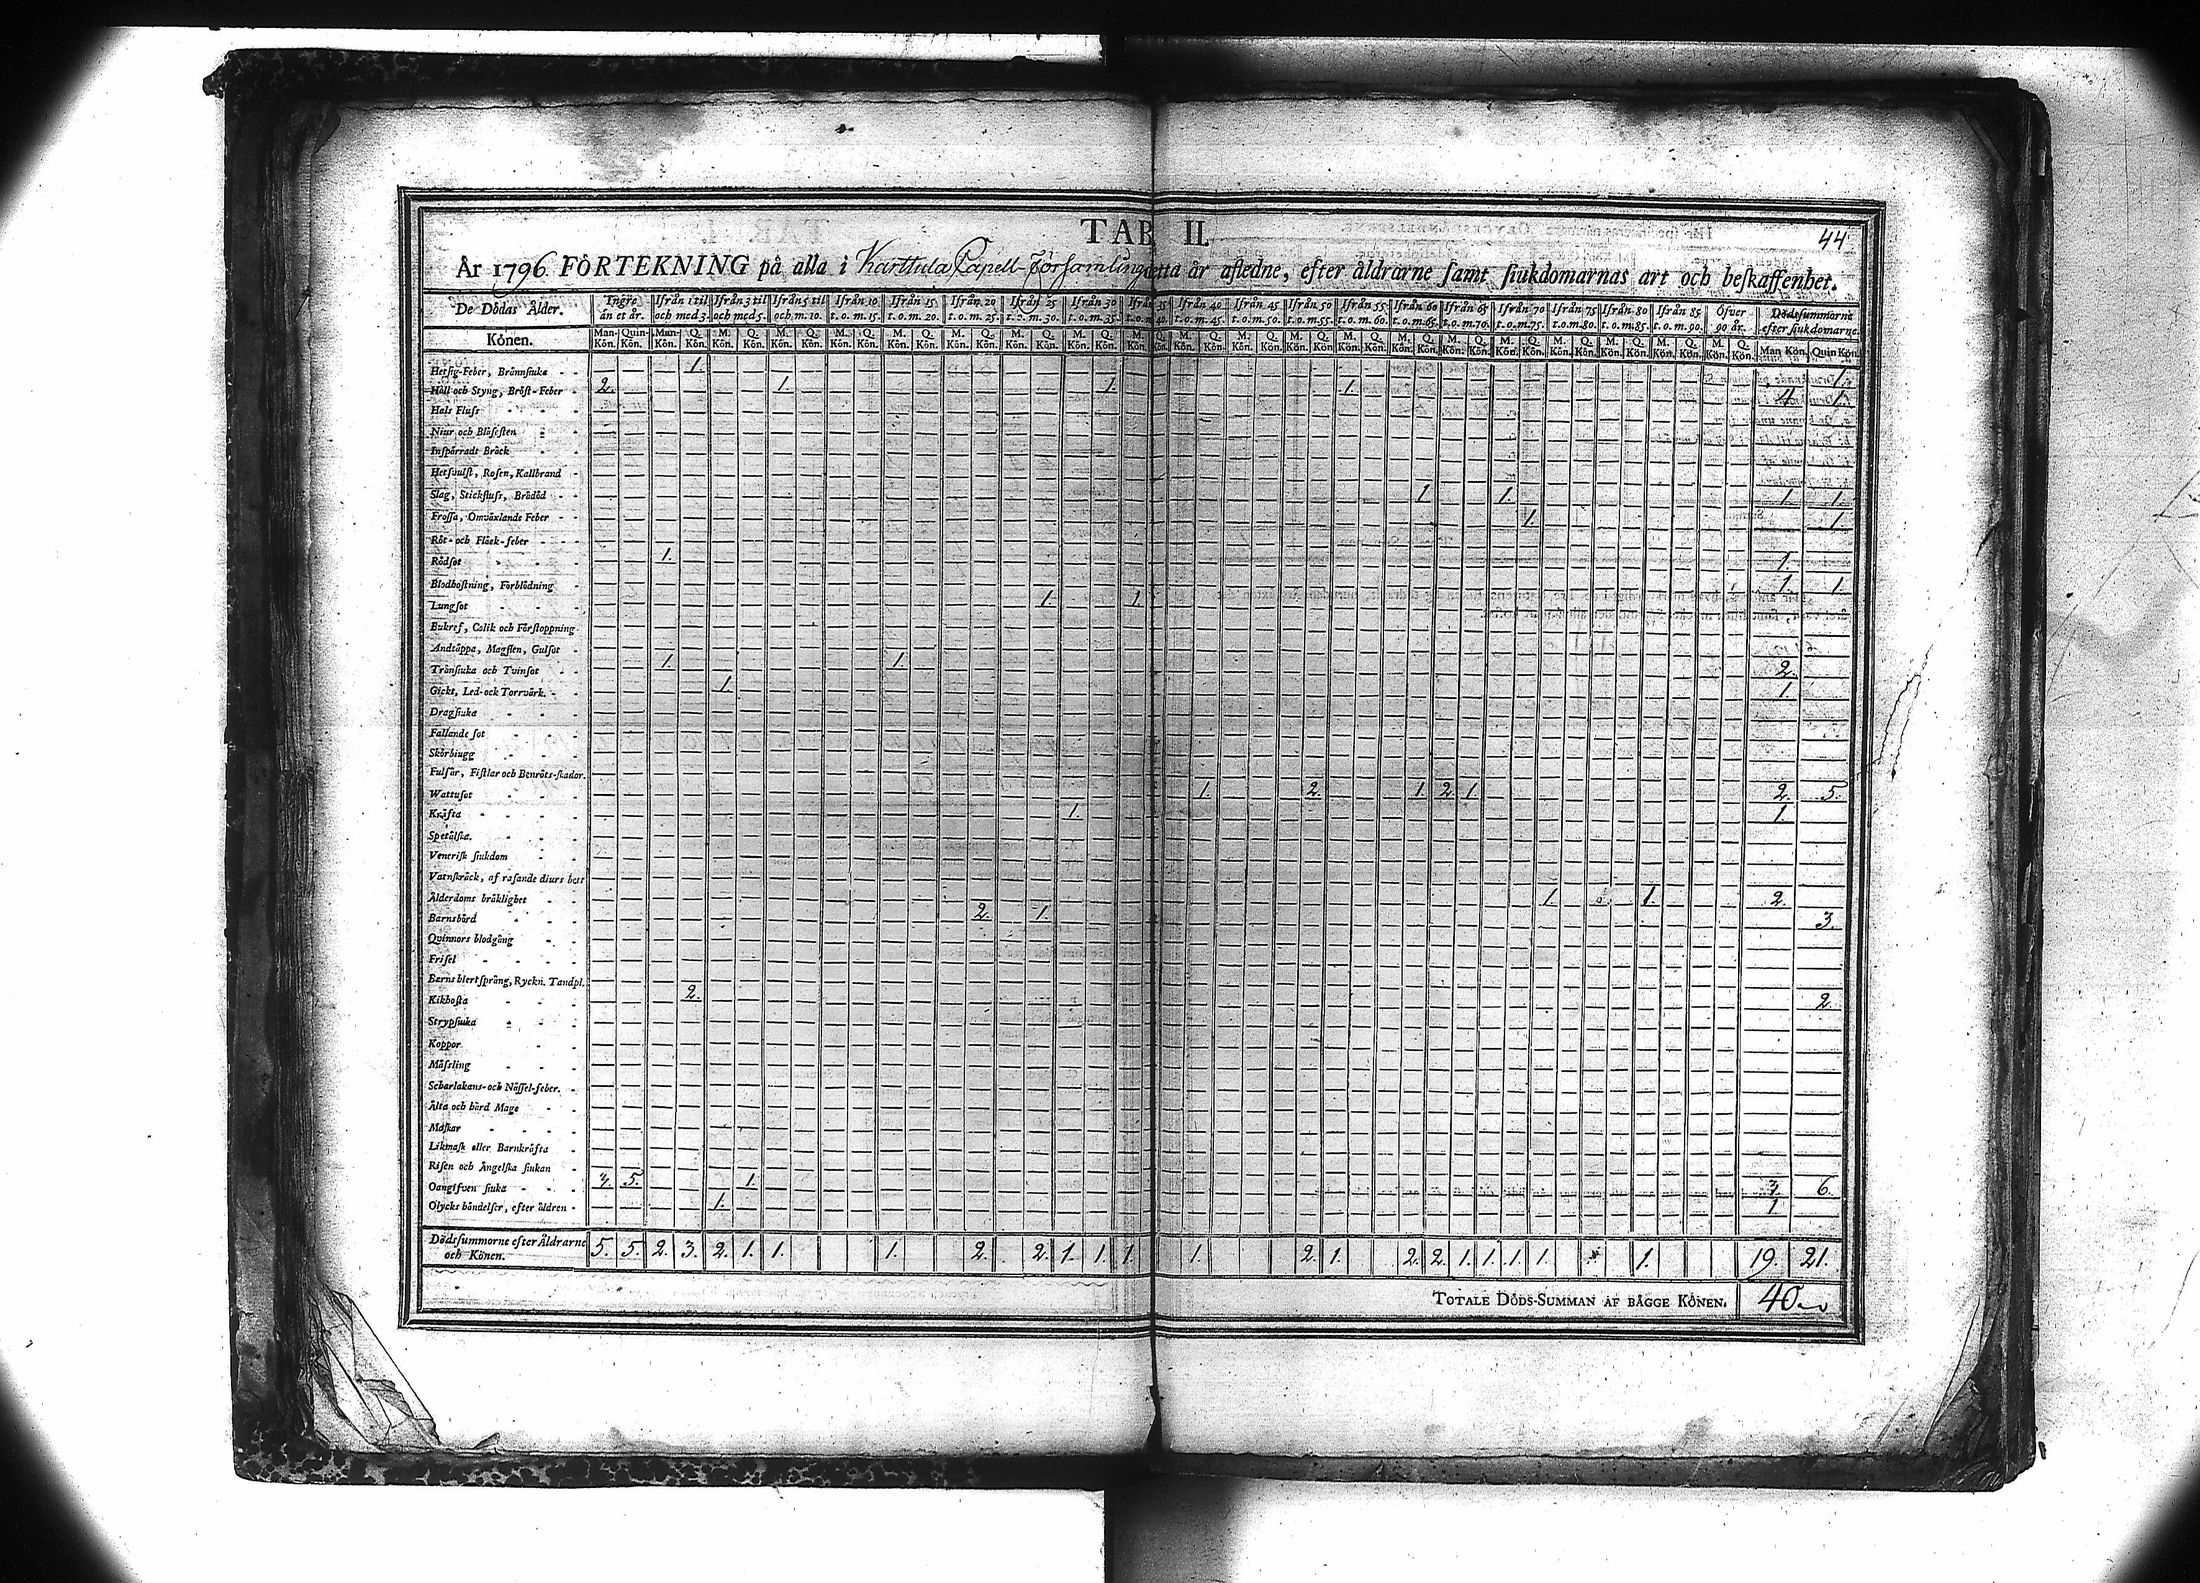 TAB II.
44
År 1796 FÖRTEKNING på alla i Karttula Capell-Församling detta år aflednе, efter åldrarne samt siukdomarnas art och beskaffenhet.
De Dödas Ålder. Yngre än et år. Ifrån 1 til och med 3. Ifrån 3 til och med 5. Ifrån 5 til och m. 10. Ifrån 10 t. o. m. 15. Ifrån 15 t. o. m. 20. Ifrån 20 t. o. m. 25. Ifrån 25 t. o. m. 30. Ifrån 30 t. o. m. 35. Ifrån 35 t. o. m. 40. Ifrån 40 t. o. m. 45. Ifrån 45 t. o. m. 50. Ifrån 50 t. o. m. 55. Ifrån 55 t. o. m. 60. Ifrån 60 t. o. m. 65. Ifrån 65 t. o. m. 70. Ifrån 70 t. o. m. 75. Ifrån 75 t. o. m. 80. Ifrån 80 t. o. m. 85. Ifrån 85 t. o. m. 90. Öfver 90 år. Dödssummorne efter siukdomarne.
Könen. Man-Kön. Quin-Kön. Man-Kön. Q. Kön. M. Kön. Q. Kön. M. Kön. Q. Kön. M. Kön. Q. Kön. M. Kön. Q. Kön. M. Kön. Q. Kön. M. Kön. Q. Kön. M. Kön. Q. Kön. M. Kön. Q. Kön. M. Kön. Q. Kön. M. Kön. Q. Kön. M. Kön. Q. Kön. M. Kön. Q. Kön. M. Kön. Q. Kön. M. Kön. Q. Kön. M. Kön. Q. Kön. M. Kön. Q. Kön. M. Kön. Q. Kön. M. Kön. Q. Kön. M. Kön. Q. Kön. Man Kön. Quin Kön.
Hetsig-Feber, Brännsiuka 1. 1.
Håll och Styng, Bröst-Feber 2. 1. 1. 1. 4. 1.
Hals Fluss
Niur och Blåsesten
Inspärradt Bråck
Hetsvulst, Rosen, Kallbrand
Slag, Stickfluss, Brådöd 1. 1. 1. 1.
Frossa, Omväxlande Feber 1. 1.
Röt- och Fläck-feber
Rödsot 1. 1.
Blodhostning, Förblödning 1. 1.
Lungsot 1. 1.
Bukref, Colik och Förstoppning
Andtäppa, Magsten, Gulsot
Trånsiuka och Tvinsot 1. 1. 2.
Gickt, Led- och Torrvärk. 1. 1.
Dragsiuka
Fallande sot
Skörbiugg
Fulsår, Fistlar och Benröts-skador.
Wattusot 1. 2. 1. 2. 1. 2. 5.
Kräfta 1. 1.
Spetälska.
Venerisk siukdom
Vatnskräck, af rasande diurs bett
Ålderdoms bräklighet 1. 1. 2.
Barnsbörd 2. 1. 3.
Qvinnors blodgång
Frisel
Barns hiertsprång, Ryckn. Tandpl.
Kikhosta 2. 2.
Strypsiuka
Koppor
Mässling
Scharlakans- och Nässel-feber.
Älta och hård Mage
Maskar
Likmask eller Barnkräfta
Risen och Ängelska siukan
Oangifven siuka 3. 5. 1. 3. 6.
Olycks händelser, efter åldren 1. 1.
Dödssummorne efter Åldrarne
och Könen. 5. 5. 2. 3. 2. 1. 1. 1. 2. 2. 1. 1. 1. 1. 2. 1. 2. 2. 1. 1. 1. 1. 1. 19. 21.
TOTALE DÖDS-SUMMAN AF BÄGGE KÖNEN. 40.